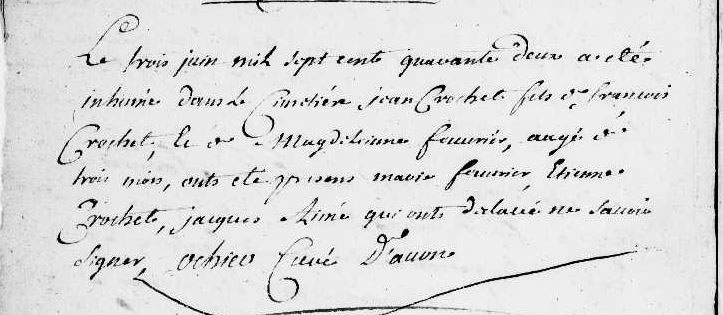 Le trois juin mil sept cents quarante deux a eté
inhumé dans le Cimetiére jean Crochet fils de francois
Crochet, et de Magdelenne fouurier, augé de
trois mois, onts ete presens marie fourrier, Etienne
Crochet, jacques Aimé qui onts declaré ne savoir
signer, Curé D'avon